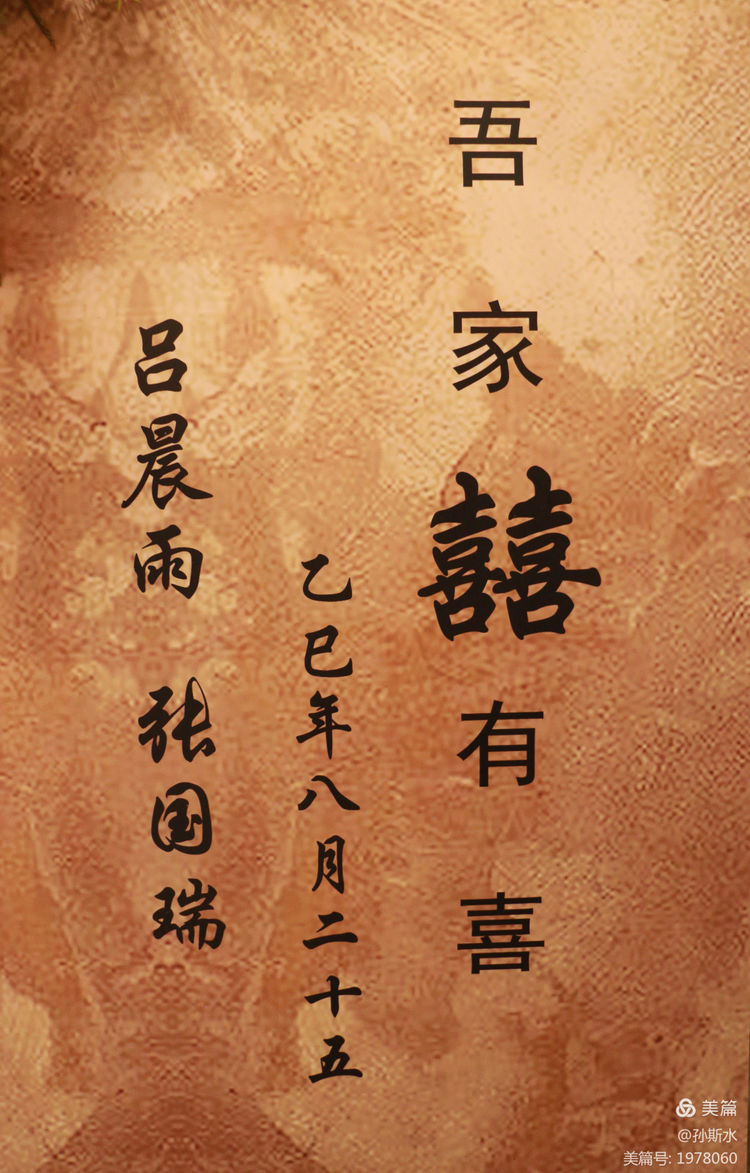 吾家囍有喜
乙巳年八月二十五
吕晨雨 张国瑞
美篇
@孙斯水
美篇号: 1978060